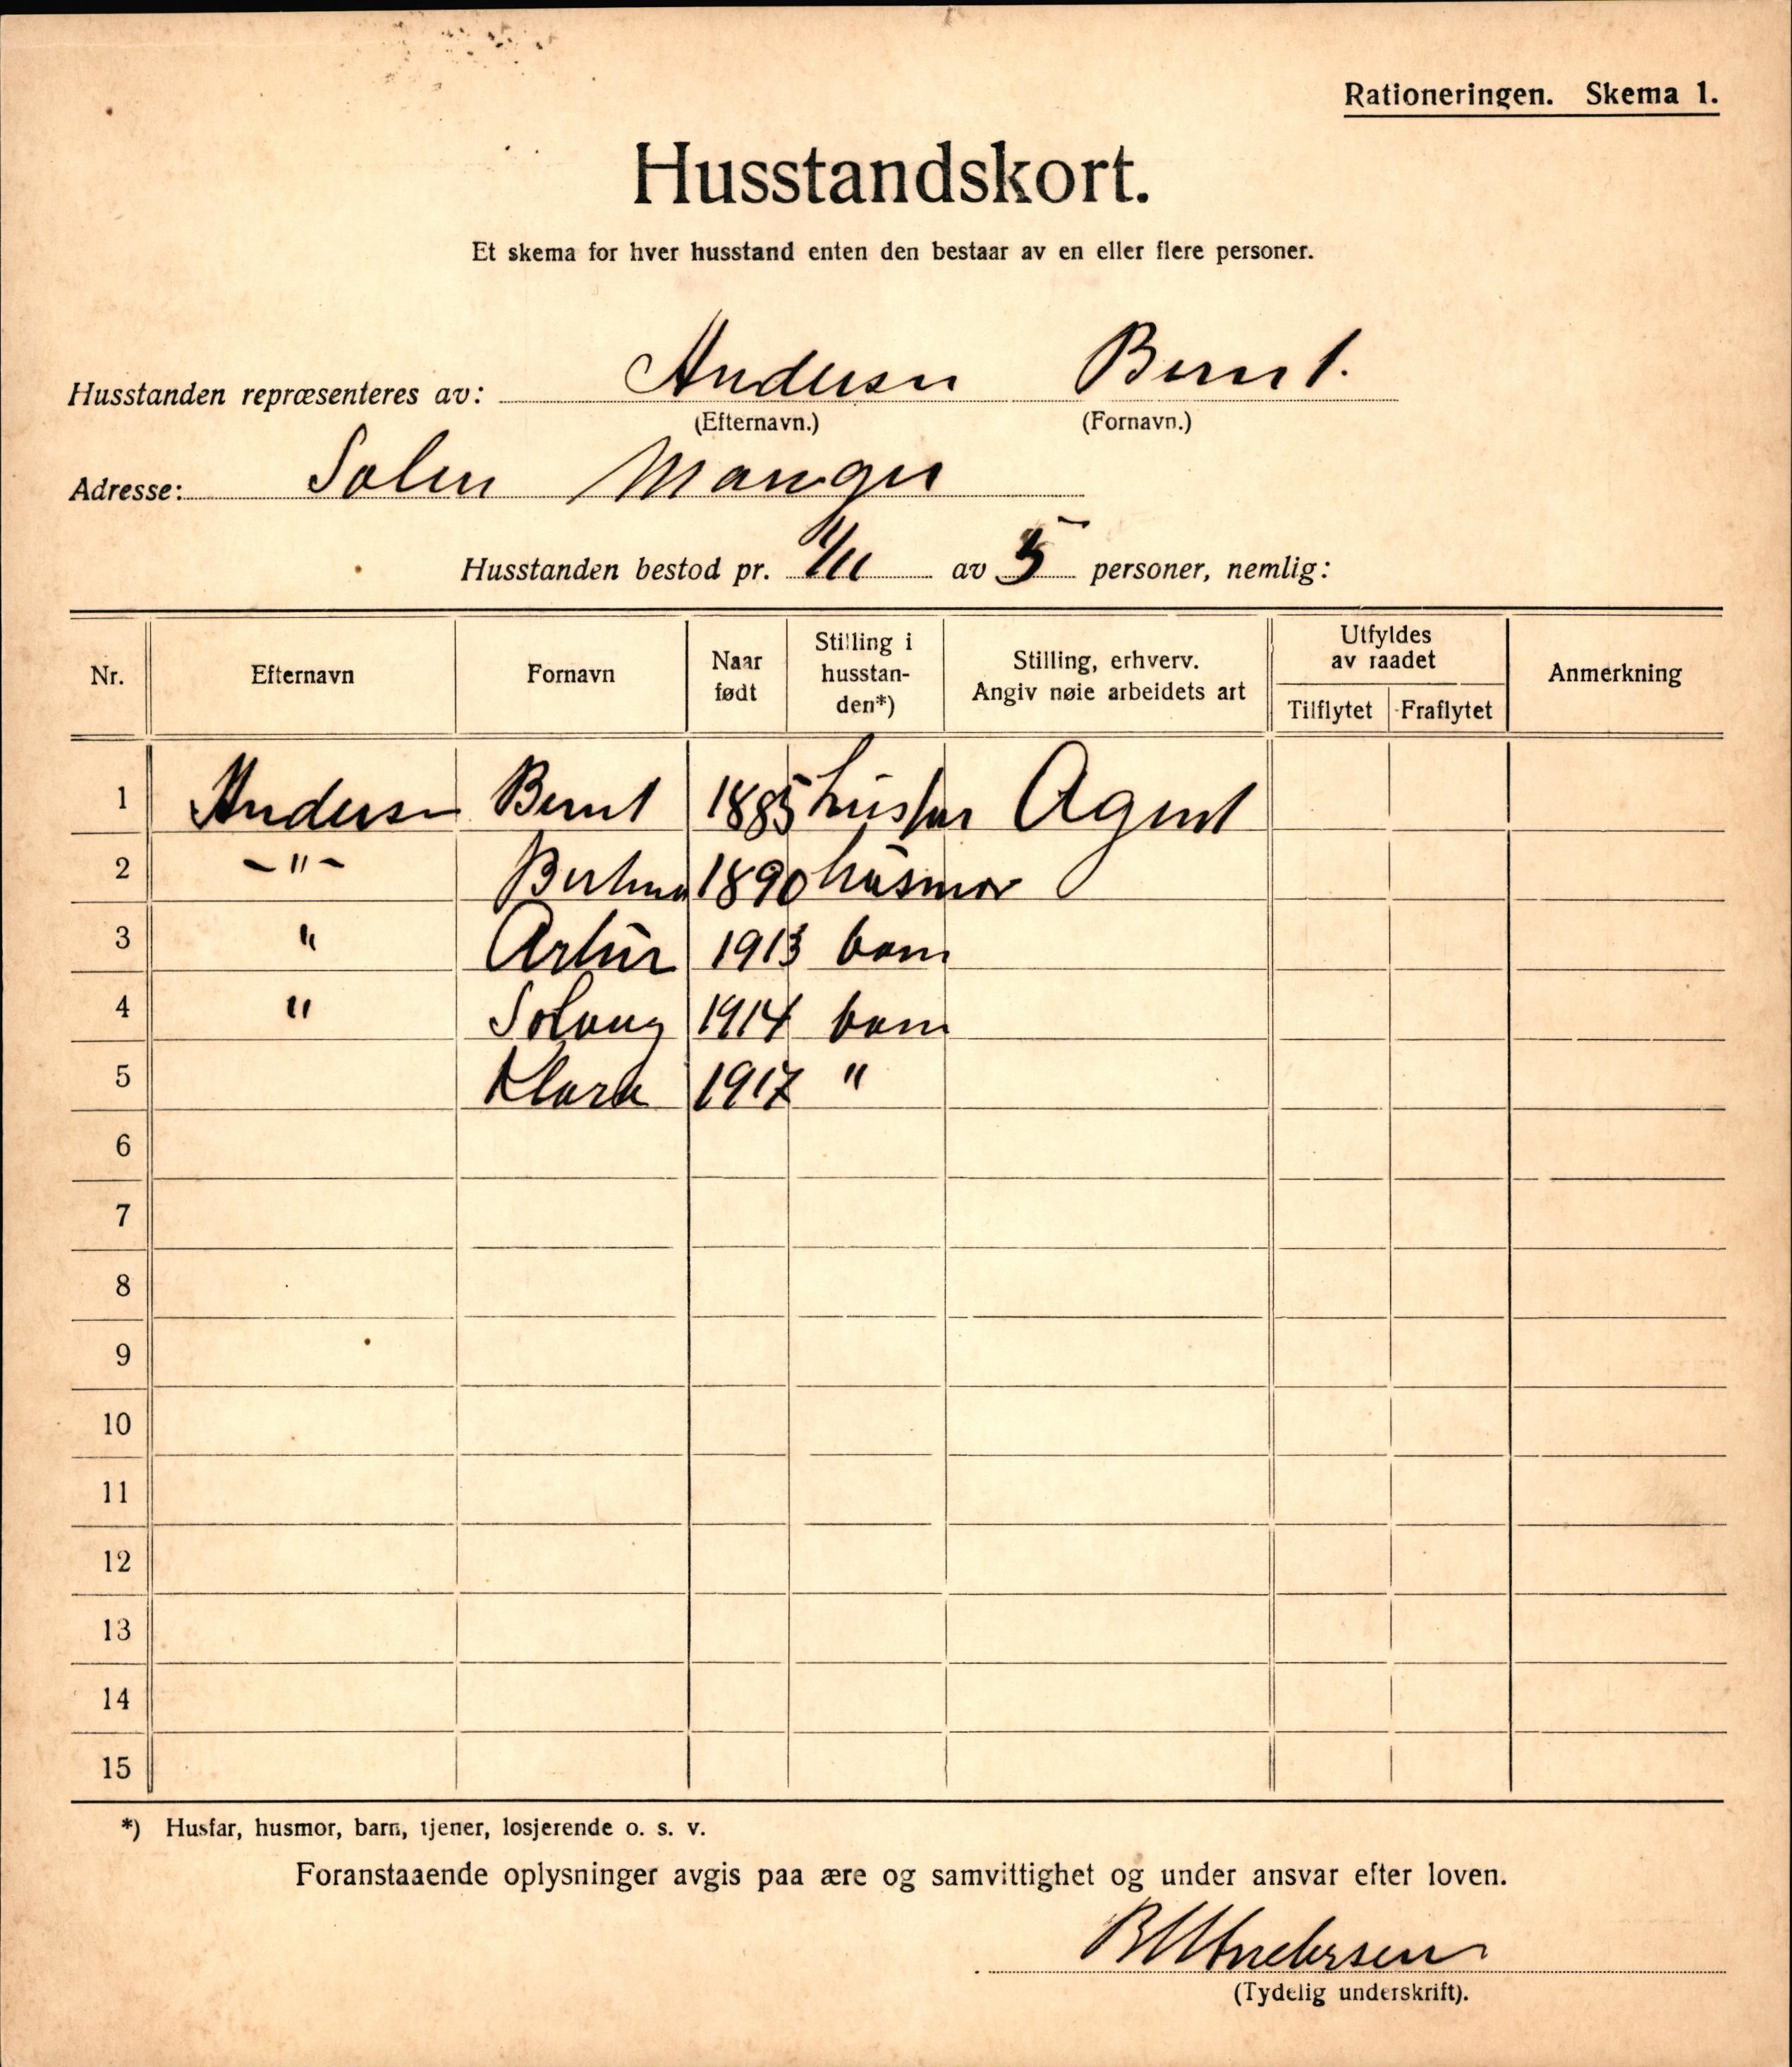 Rationeringen. Skema 1.
Husstandskort.
Et skema for hver husstand enten den bestaar av en eller flere personer.
Husstanden repræsenteres av: Andersen Bernt.
(Efternavn.) (Fornavn.)
Adresse: Solen Manger
Husstanden bestod pr. 1/11 av 5 personer, nemlig:
Nr. Efternavn Fornavn Naar født Stilling i husstan-den*) Stilling, erhverv. Angiv nøie arbeidets art Utfyldes av raadet Tilflytet Fraflytet Anmerkning
1 Andersen Bernt 1885 husfar Agent
2 -"- 1890 husmor
3 " Artur 1913 barn
4 " Solveig 1914 barn
5 Klara 1917 "
6
7
8
9
10
11
12
13
14
15
*) Husfar, husmor, barn, tjener, losjerende o. s. v.
Foranstaaende oplysninger avgis paa ære og samvittighet og under ansvar efter loven.
Andersen
(Tydelig underskrift).